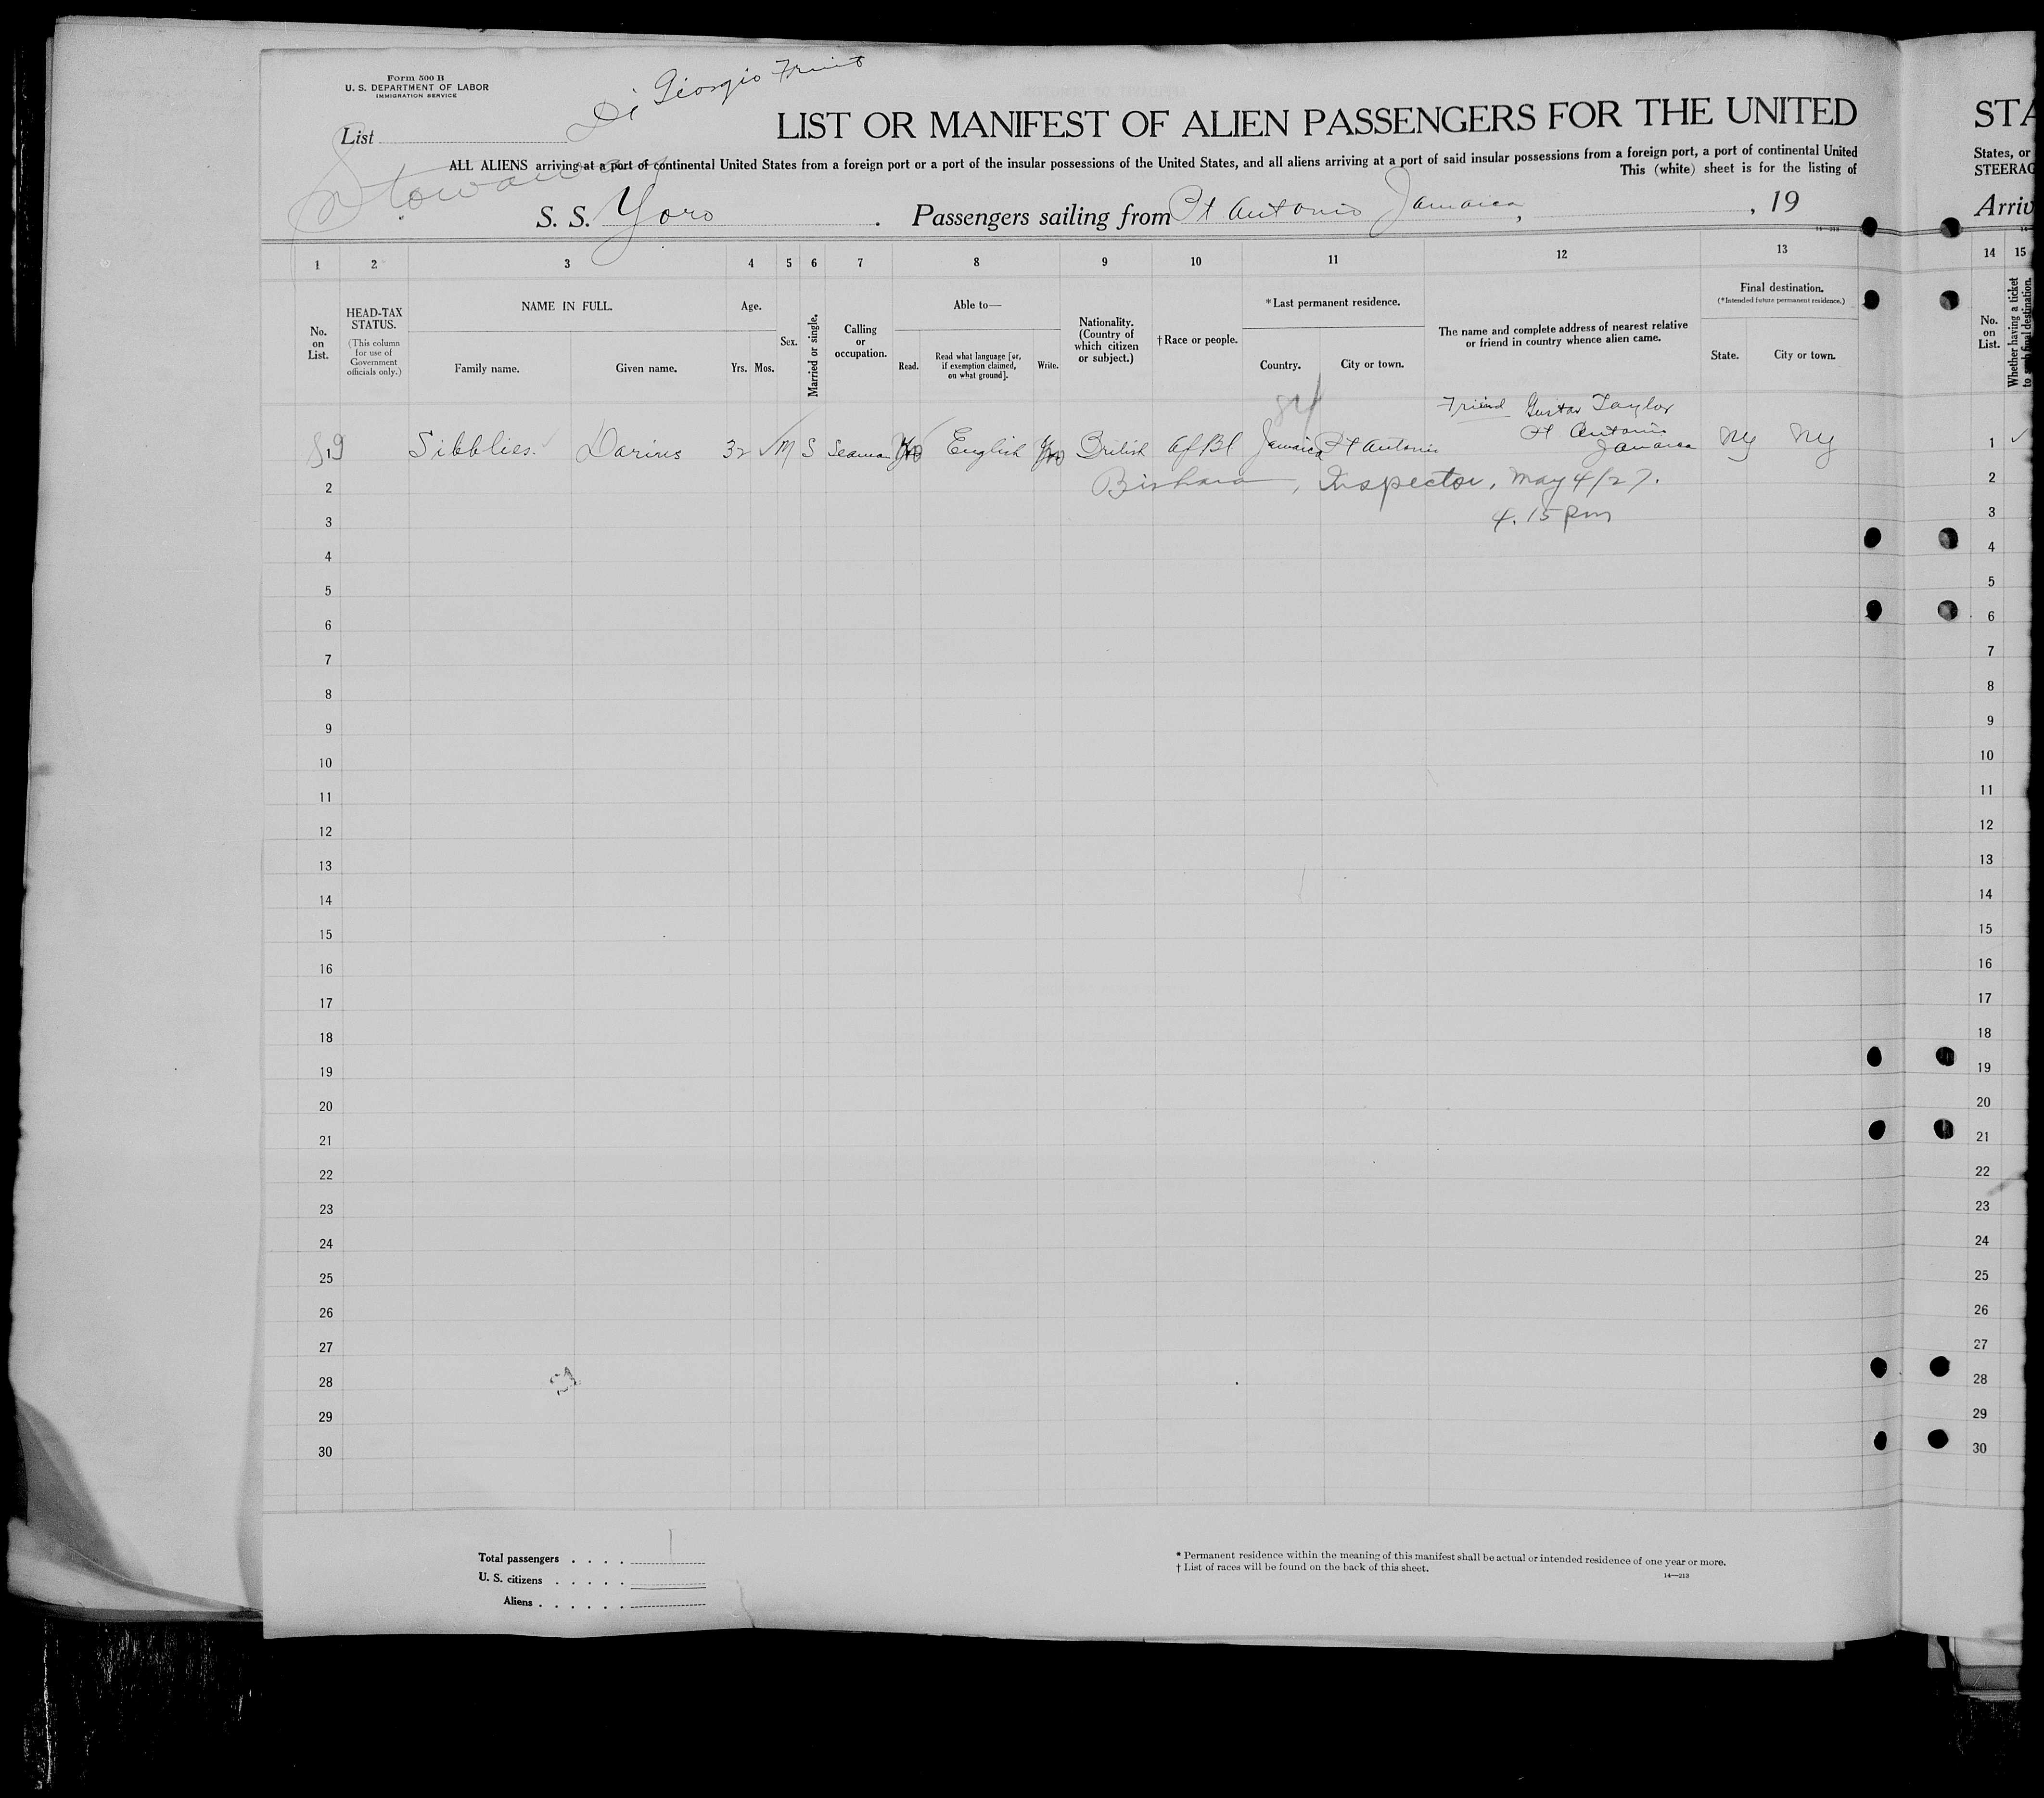 Form 500 B
U. S. DEPARTMENT OF LABOR
IMMIGRATION SERVICE
Di Giorgio Fruit
List
Stowaway
LIST OR MANIFEST OF ALIEN PASSENGERS FOR THE UNITED
STA
ALL ALIENS arriving at a port of continental United States from a foreign port or a port of the insular possessions of the United States, and all aliens arriving at a port of said insular possessions from a foreign port, a port of continental United
States, or
This (white) sheet is for the listing of
STEERAG
S. S. Yoro . Passengers sailing from Pt Antonio Jamaica, , 19
Arriv
1 2 3 4 5 6 7 8 9 10 11 12 13
14 15
No. on List.
HEAD-TAX STATUS.
(This column for use of Government officials only.)
NAME IN FULL.
Family name. Given name.
Age.
Yrs. Mos.
Sex.
Married or single.
Calling or occupation.
Able to—
Read.
Read what language [or, if exemption claimed, on what ground].
Write.
Nationality. (Country of which citizen or subject.)
†Race or people.
*Last permanent residence.
Country. City or town.
The name and complete address of nearest relative or friend in country whence alien came.
Final destination.
(*Intended future permanent residence.)
State. City or town.
No. on List.
Whether having a ticket to such final destination.
84
Friend Gustav Taylor
Pt Antonio
Jamaica
1 Sibblies Darius 32 M S Seaman Yes English Yes British Af Bl Jamaica Pt Antonio NY NY
1
2 Bishara, Inspector, May 4/27.
2
4.15 pm
3
3
4
4
5
5
6
6
7
7
8
8
9
9
10
10
11
11
12
12
13
13
14
14
15
15
16
16
17
17
18
18
19
19
20
20
21
21
22
22
23
23
24
24
25
25
26
26
27
27
28
28
29
29
30
30
Total passengers . . . . 1
U. S. citizens . . . . .
Aliens . . . . . .
* Permanent residence within the meaning of this manifest shall be actual or intended residence of one year or more.
† List of races will be found on the back of this sheet.
14—213